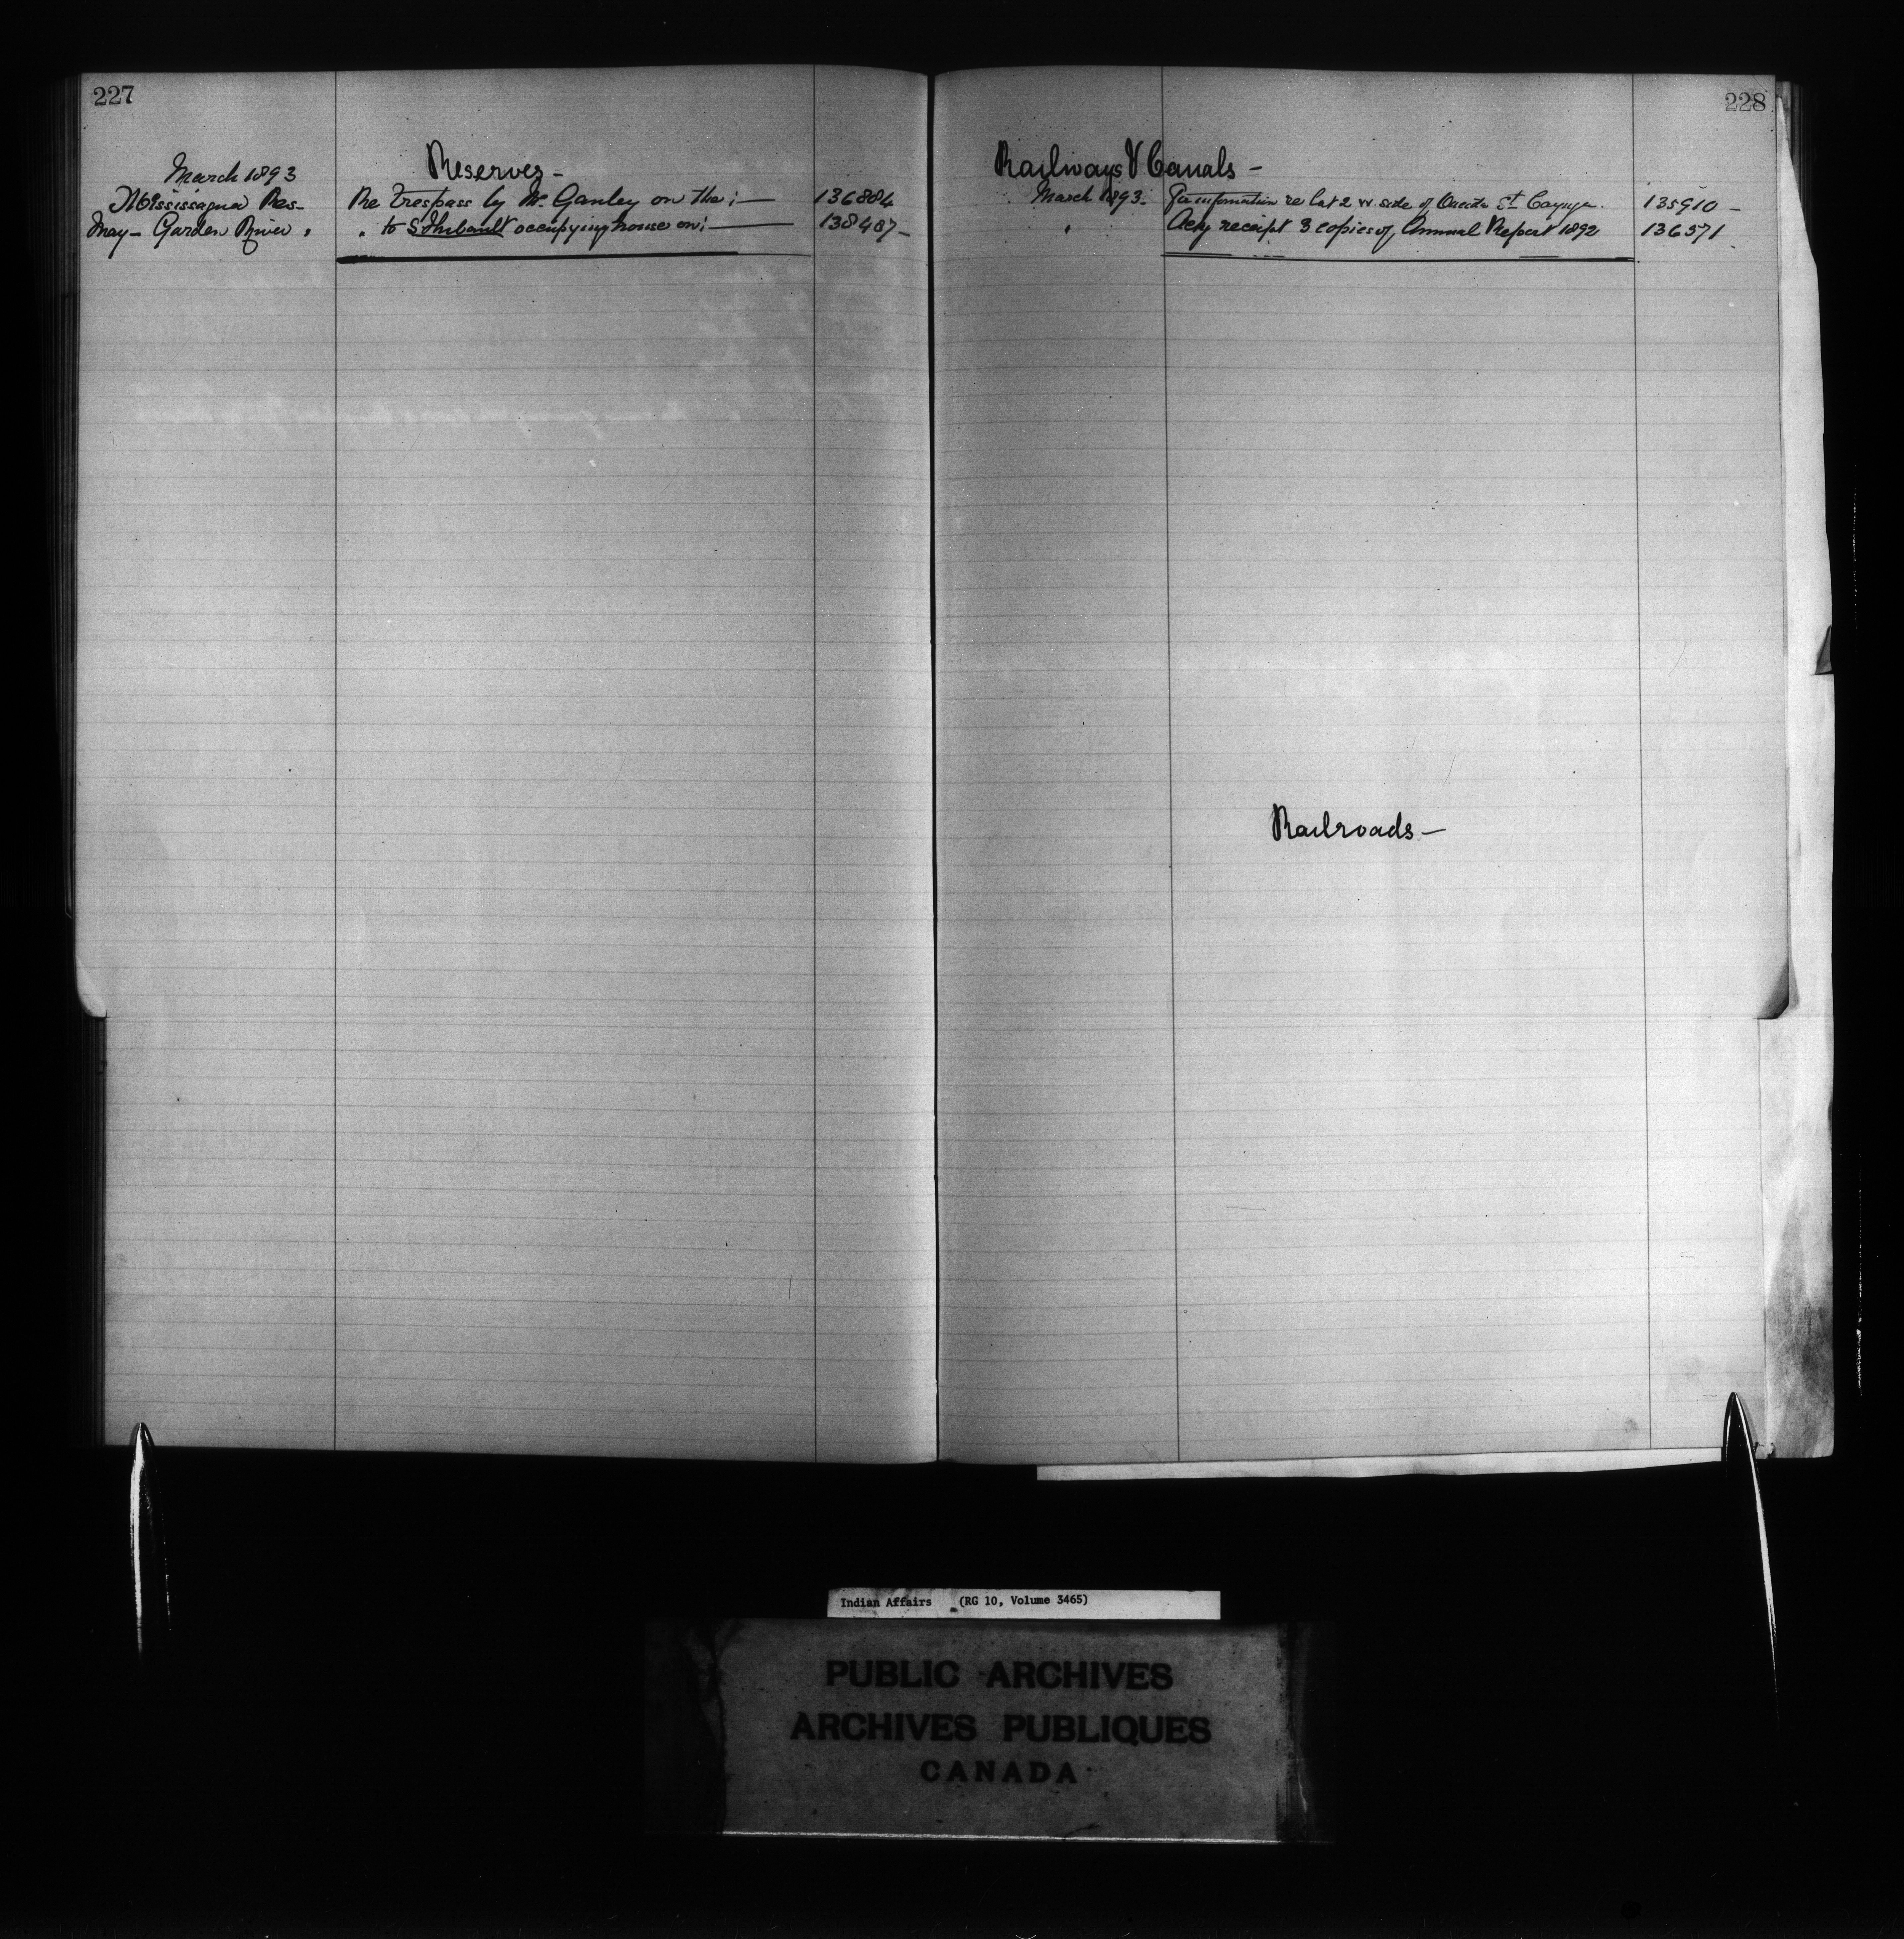 227
Reserves -
March 1893
Mississagua Res- Re Trespass by W. Ganley on the ;— 136884
May - Garden River " " to S. Thibault occupying house on ;— 138487 -
228
Railways & Canals -
March 1893. For information re lot 2 W. side of Oneida St Cayuga. 135910 -
" Ackg receipt 3 copies of Annual Report 1892 136571
Railroads -
Indian Affairs (RG 10, Volume 3465)
PUBLIC ARCHIVES
ARCHIVES PUBLIQUES
CANADA